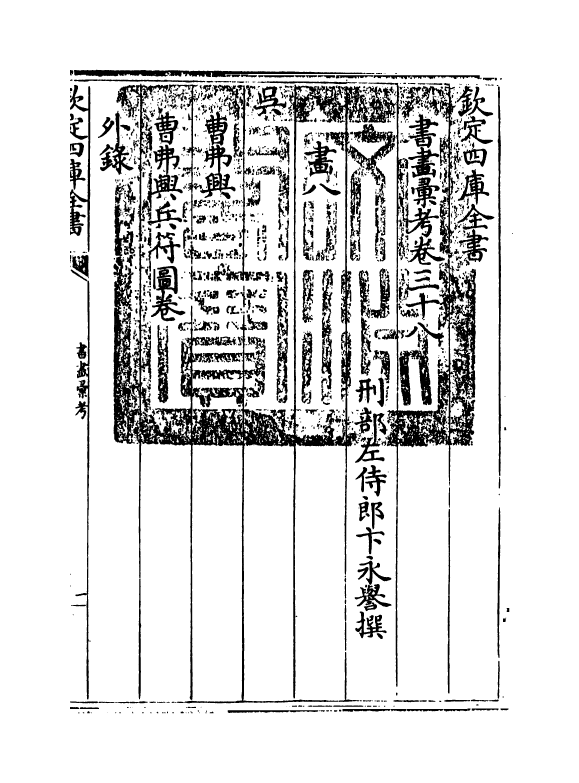 欽定四庫全書
書畫彙考卷三十八
刑部左侍郎卞永譽撰
畫八
吳
曹弗興
曹弗興兵符圖卷
外錄
欽定四庫全書
書畫彙考